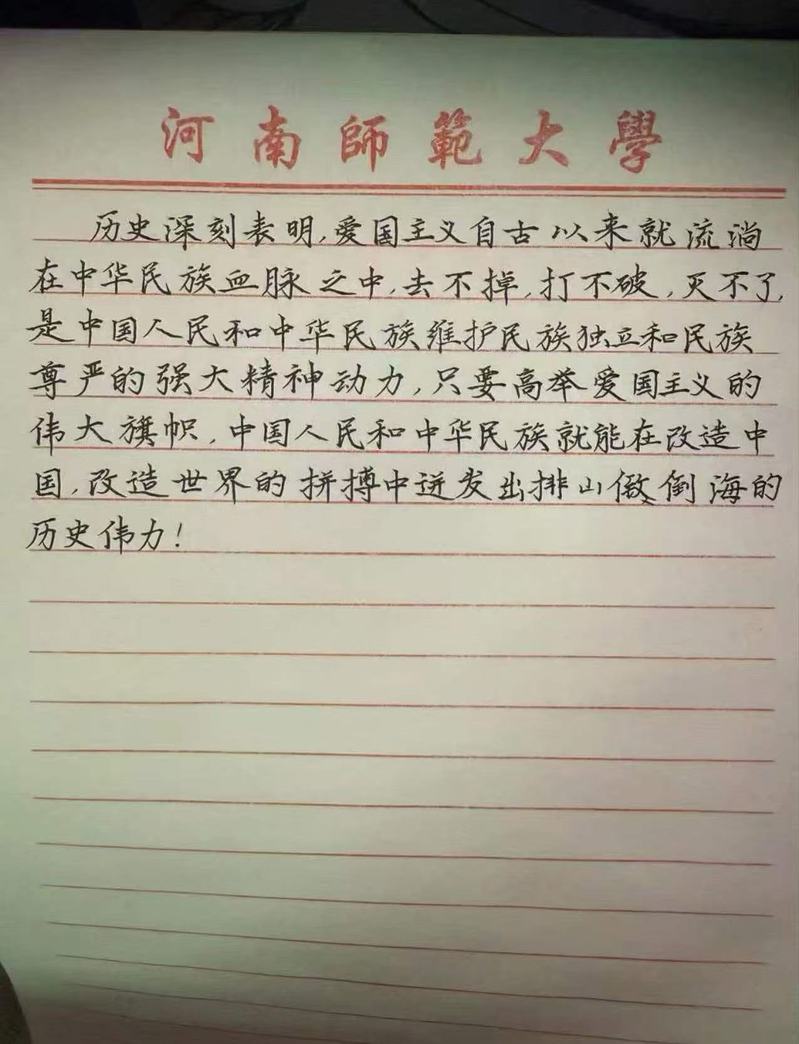 河南師範大學
历史深刻表明,爱国主义自古以来就流淌
在中华民族血脉之中,去不掉,打不破,灭不了,
是中国人民和中华民族维护民族独立和民族
尊严的强大精神动力,只要高举爱国主义的
伟大旗帜,中国人民和中华民族就能在改造中
国,改造世界的拼搏中迸发出排山倒海的
历史伟力!